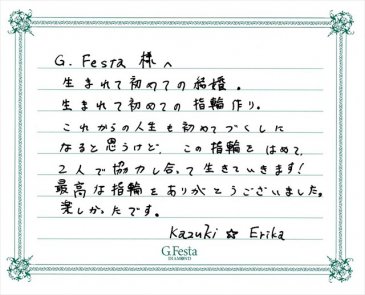 G. Festa 様へ
生まれて初めての結婚。
生まれて初めての指輪作り。
これからの人生も初めてづくしに
なると思うけど、この指輪をはめて、
2人で協力し合って生きていきます!
最高な指輪をありがとうございました。
楽しかったです。
Kazuki ☆ Erika
G.Festa
DIAMOND